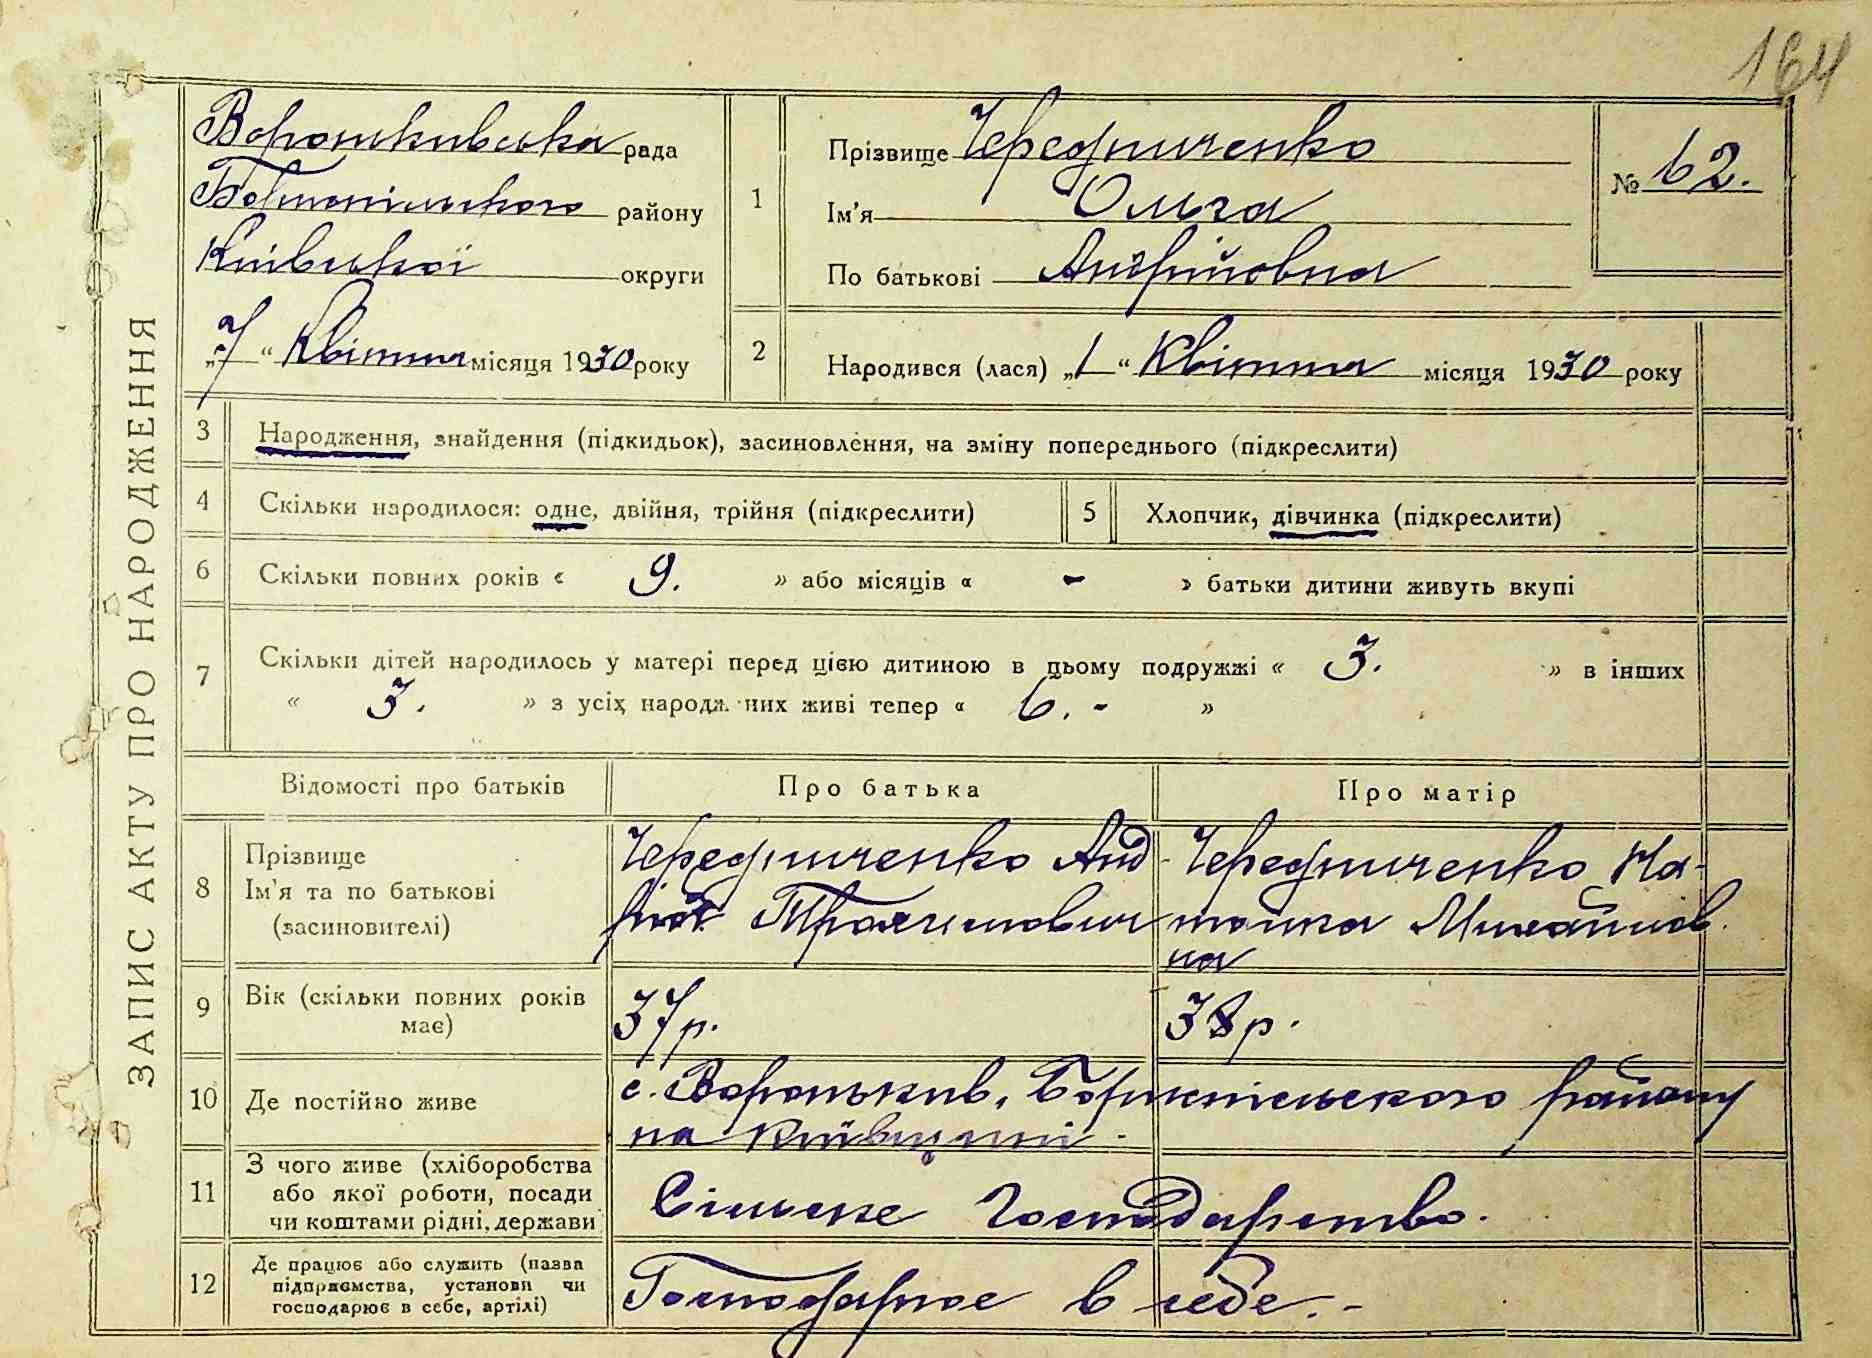 164
Вороньківська рада
Бориспільського району
Київської округи
„7“ Квітня місяця 1930 року
1
Прізвище Чередниченко
Ім'я Ольга
По батькові Андрійовна
№ 62.
2
Народився (лася) „1“ Квітня місяця 1930 року
ЗАПИС АКТУ ПРО НАРОДЖЕННЯ
3 Народження, знайдення (підкидьок), засиновлення, на зміну попереднього (підкреслити)
4 Скільки народилося: одне, двійня, трійня (підкреслити)
5 Хлопчик, дівчинка (підкреслити)
6 Скільки повних років « 9. » або місяців « - » батьки дитини живуть вкупі
7 Скільки дітей народилось у матері перед цією дитиною в цьому подружжі « 3. » в інших
« 3. » з усіх народж них живі тепер « 6. - »
Відомості про батьків
Про батька
Про матір
8
Прізвище
Ім'я та по батькові
(засиновителі)
Чередниченко Анд-
рій Трохимович
Чередниченко На-
талка Михайлов
на
9
Вік (скільки повних років
має)
37 р.
38 р.
10 Де постійно живе
с. Вороньків, Бориспільського району
на Київщині -
11
З чого живе (хліборобства
або якої роботи, посади
чи коштами рідні, держави
Сільське Господарство.
12
Де працює або служить (назва
підприємства, установи чи
господарює в себе, артілі)
Господарює в себе. -